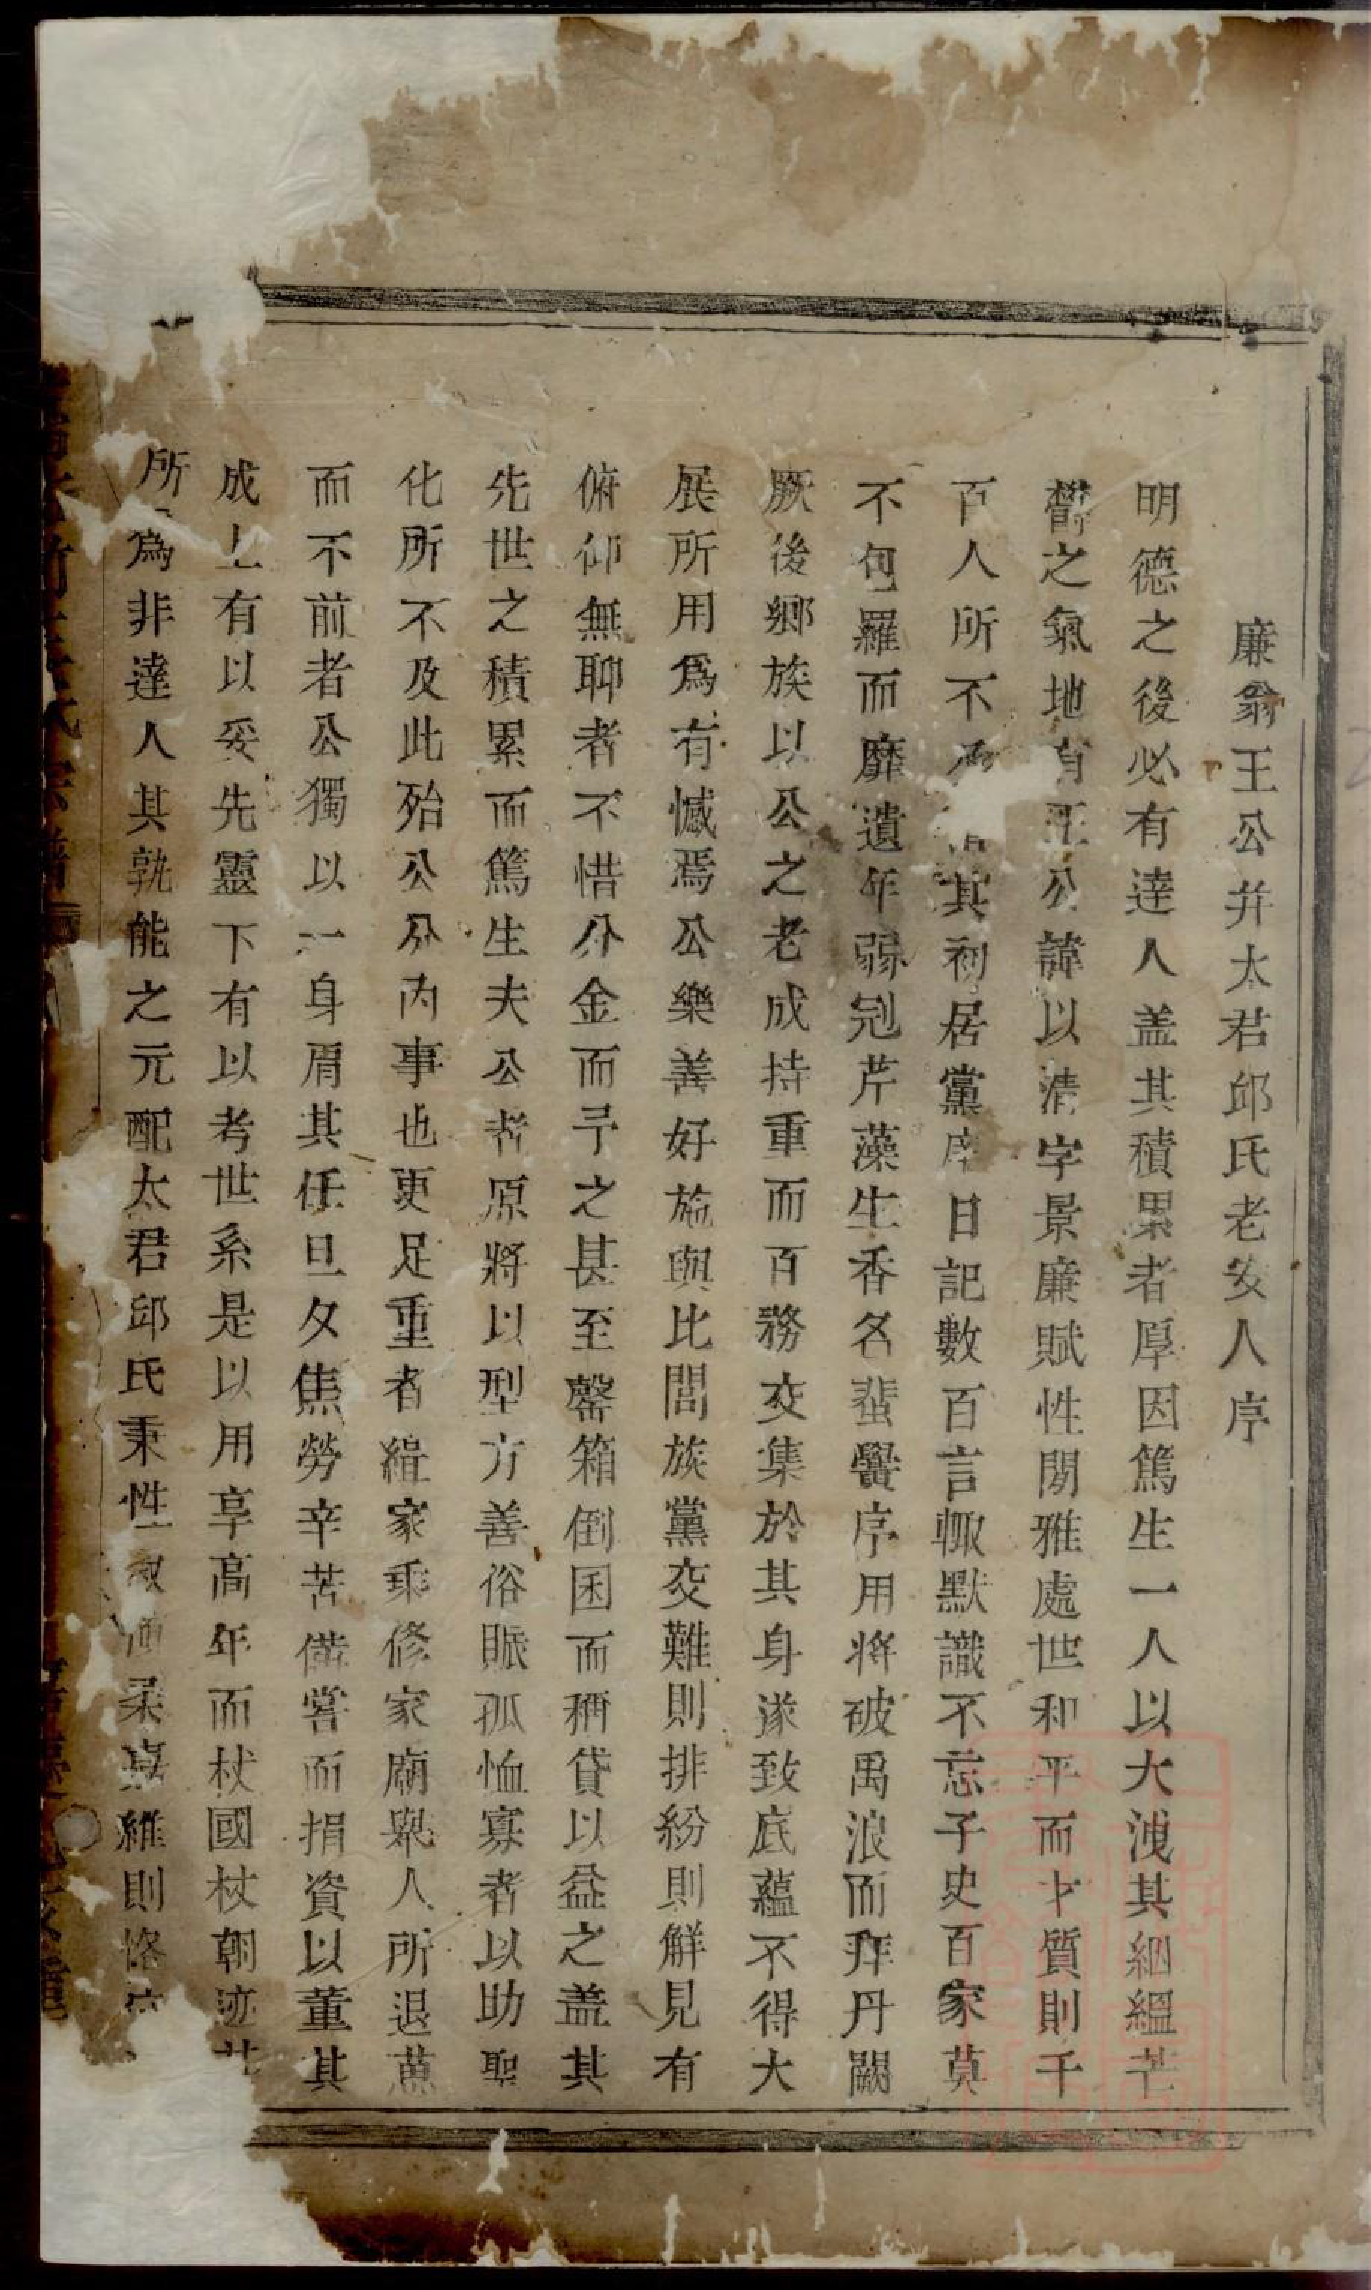 廉翁王公并太君邱氏老安人序
明德之後必有達人盖其積累者厚因篤生一人以大洩其絪縕芒
欝之氣地有王公諱以清字景廉賦性閑雅處世和平而才質則千
百人所不其初居黨庠日記數百言輙默識不忘子史百家莫
不包羅而靡遺年弱冠芹藻生香名蜚黌序用將破禹浪而拜丹闕
厥後鄉族以公之老成持重而百務交集於其身遂致底蘊不得大
展所用爲有憾焉公樂善好施與比閭族黨交難則排紛則觧見有
俯仰無聊者不惜分金而予之甚至罄箱倒囷而稱貸以益之盖其
先世之積累而篤生夫公者原將以型方善俗賑孤恤寡者以助聖
化所不及此殆公分内事也更足重者緝家乘修家廟衆人所退葸
而不前者公獨以一身肩其任旦夕焦勞辛苦俻嘗而捐資以董其
成上有以妥先靈下有以考世系是以用享高年而杖國杖朝迹其
所爲非達人其孰能之元配太君邱氏秉性柔嘉維則恪